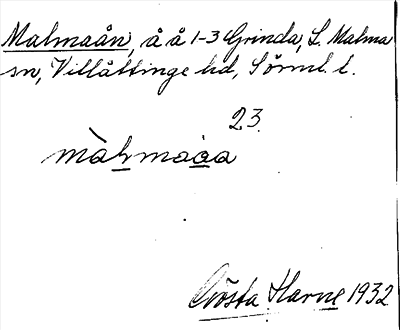 Malmaån, å å 1-3 Grinda, L. Malma
sn, Villåttinge hd, Sörml. l.
23.
màlmaåa
Gösta Harne 1932